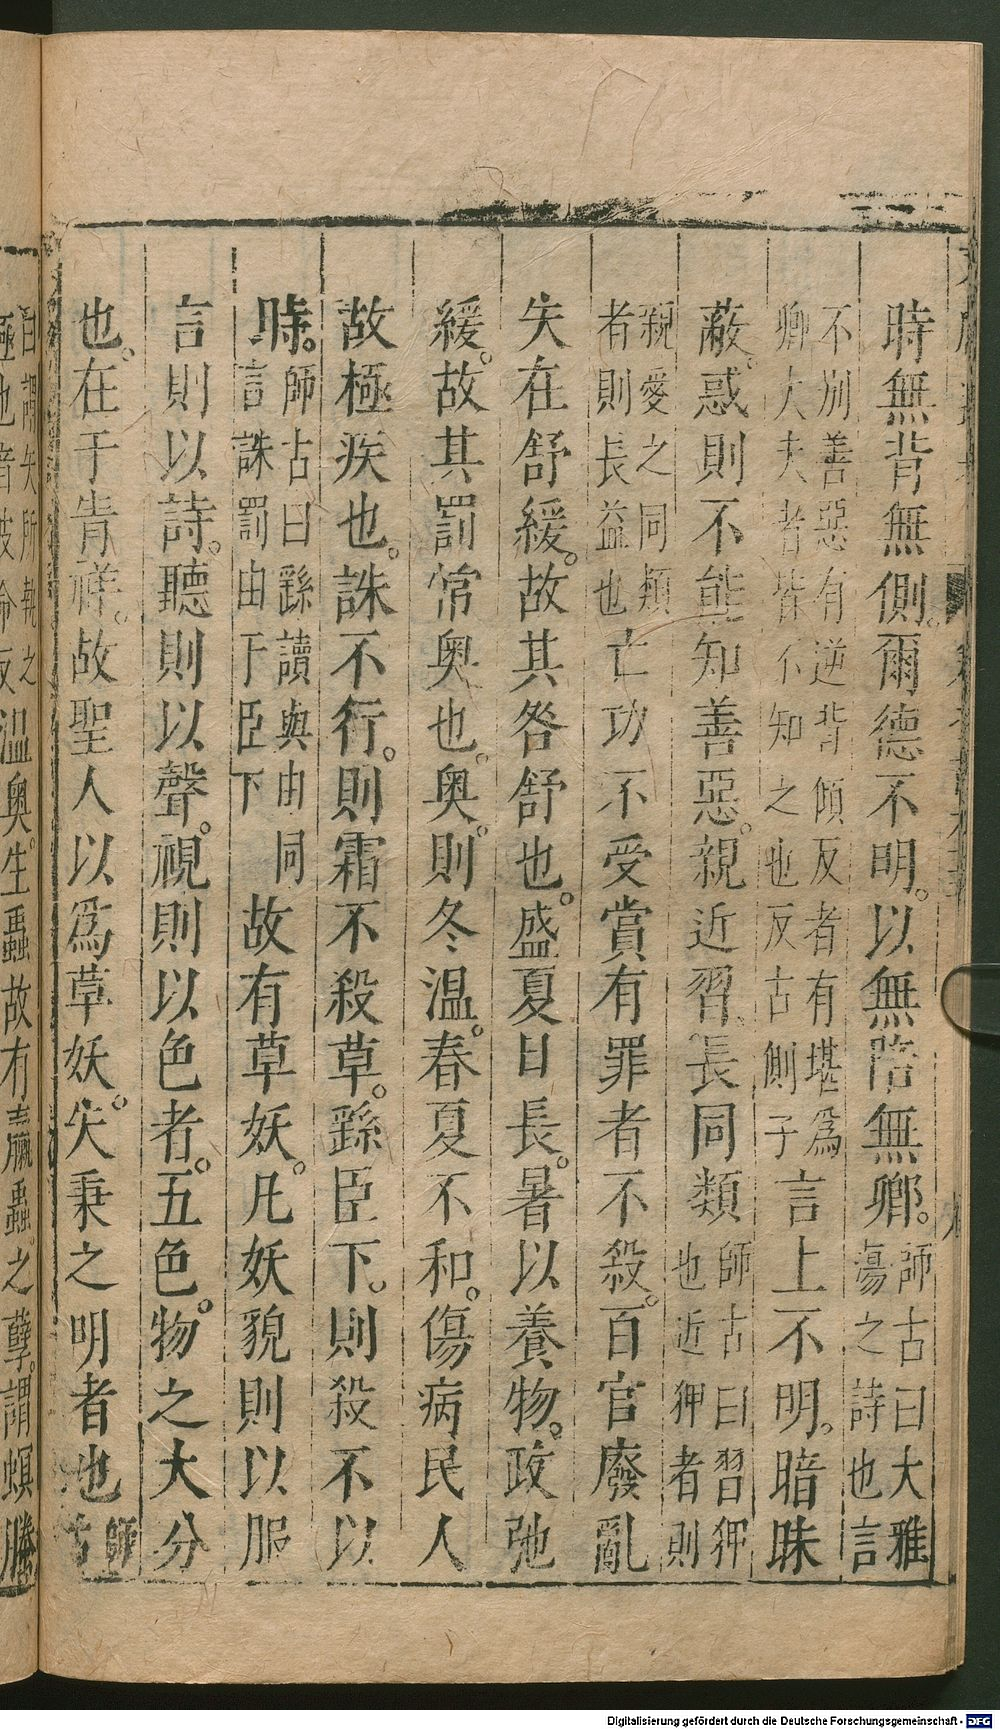 時無背無側爾德不明以無陪無卿師古曰大雅
蕩之詩也言
不別善惡有逆背傾反者有堪爲
卿大夫者皆不知之也反古側子言上不明暗昧
蔽惑則不能知善惡親近習長同類師古曰習狎
也近狎者則
親愛之同類
者則長益也亡功不受賞有罪者不殺百官廢亂
失在舒緩故其咎舒也盛夏日長暑以養物政弛
緩故其罰常奥也奥則冬溫春夏不和傷病民人
故極疾也誅不行則霜不殺草繇臣下則殺不以
時師古曰繇讀與由同
言誅罰由于臣下故有草妖凡妖貌則以服
言則以詩聽則以聲視則以色者五色物之大分
也在于眚祥故聖人以爲草妖失秉之明者也師
古
曰謂失所執之
極也音彼命反溫奥生蟲故有蠃蟲之孽謂螟螣
Digitalisierung gefördert durch die Deutsche Forschungsgemeinschaft - DFG